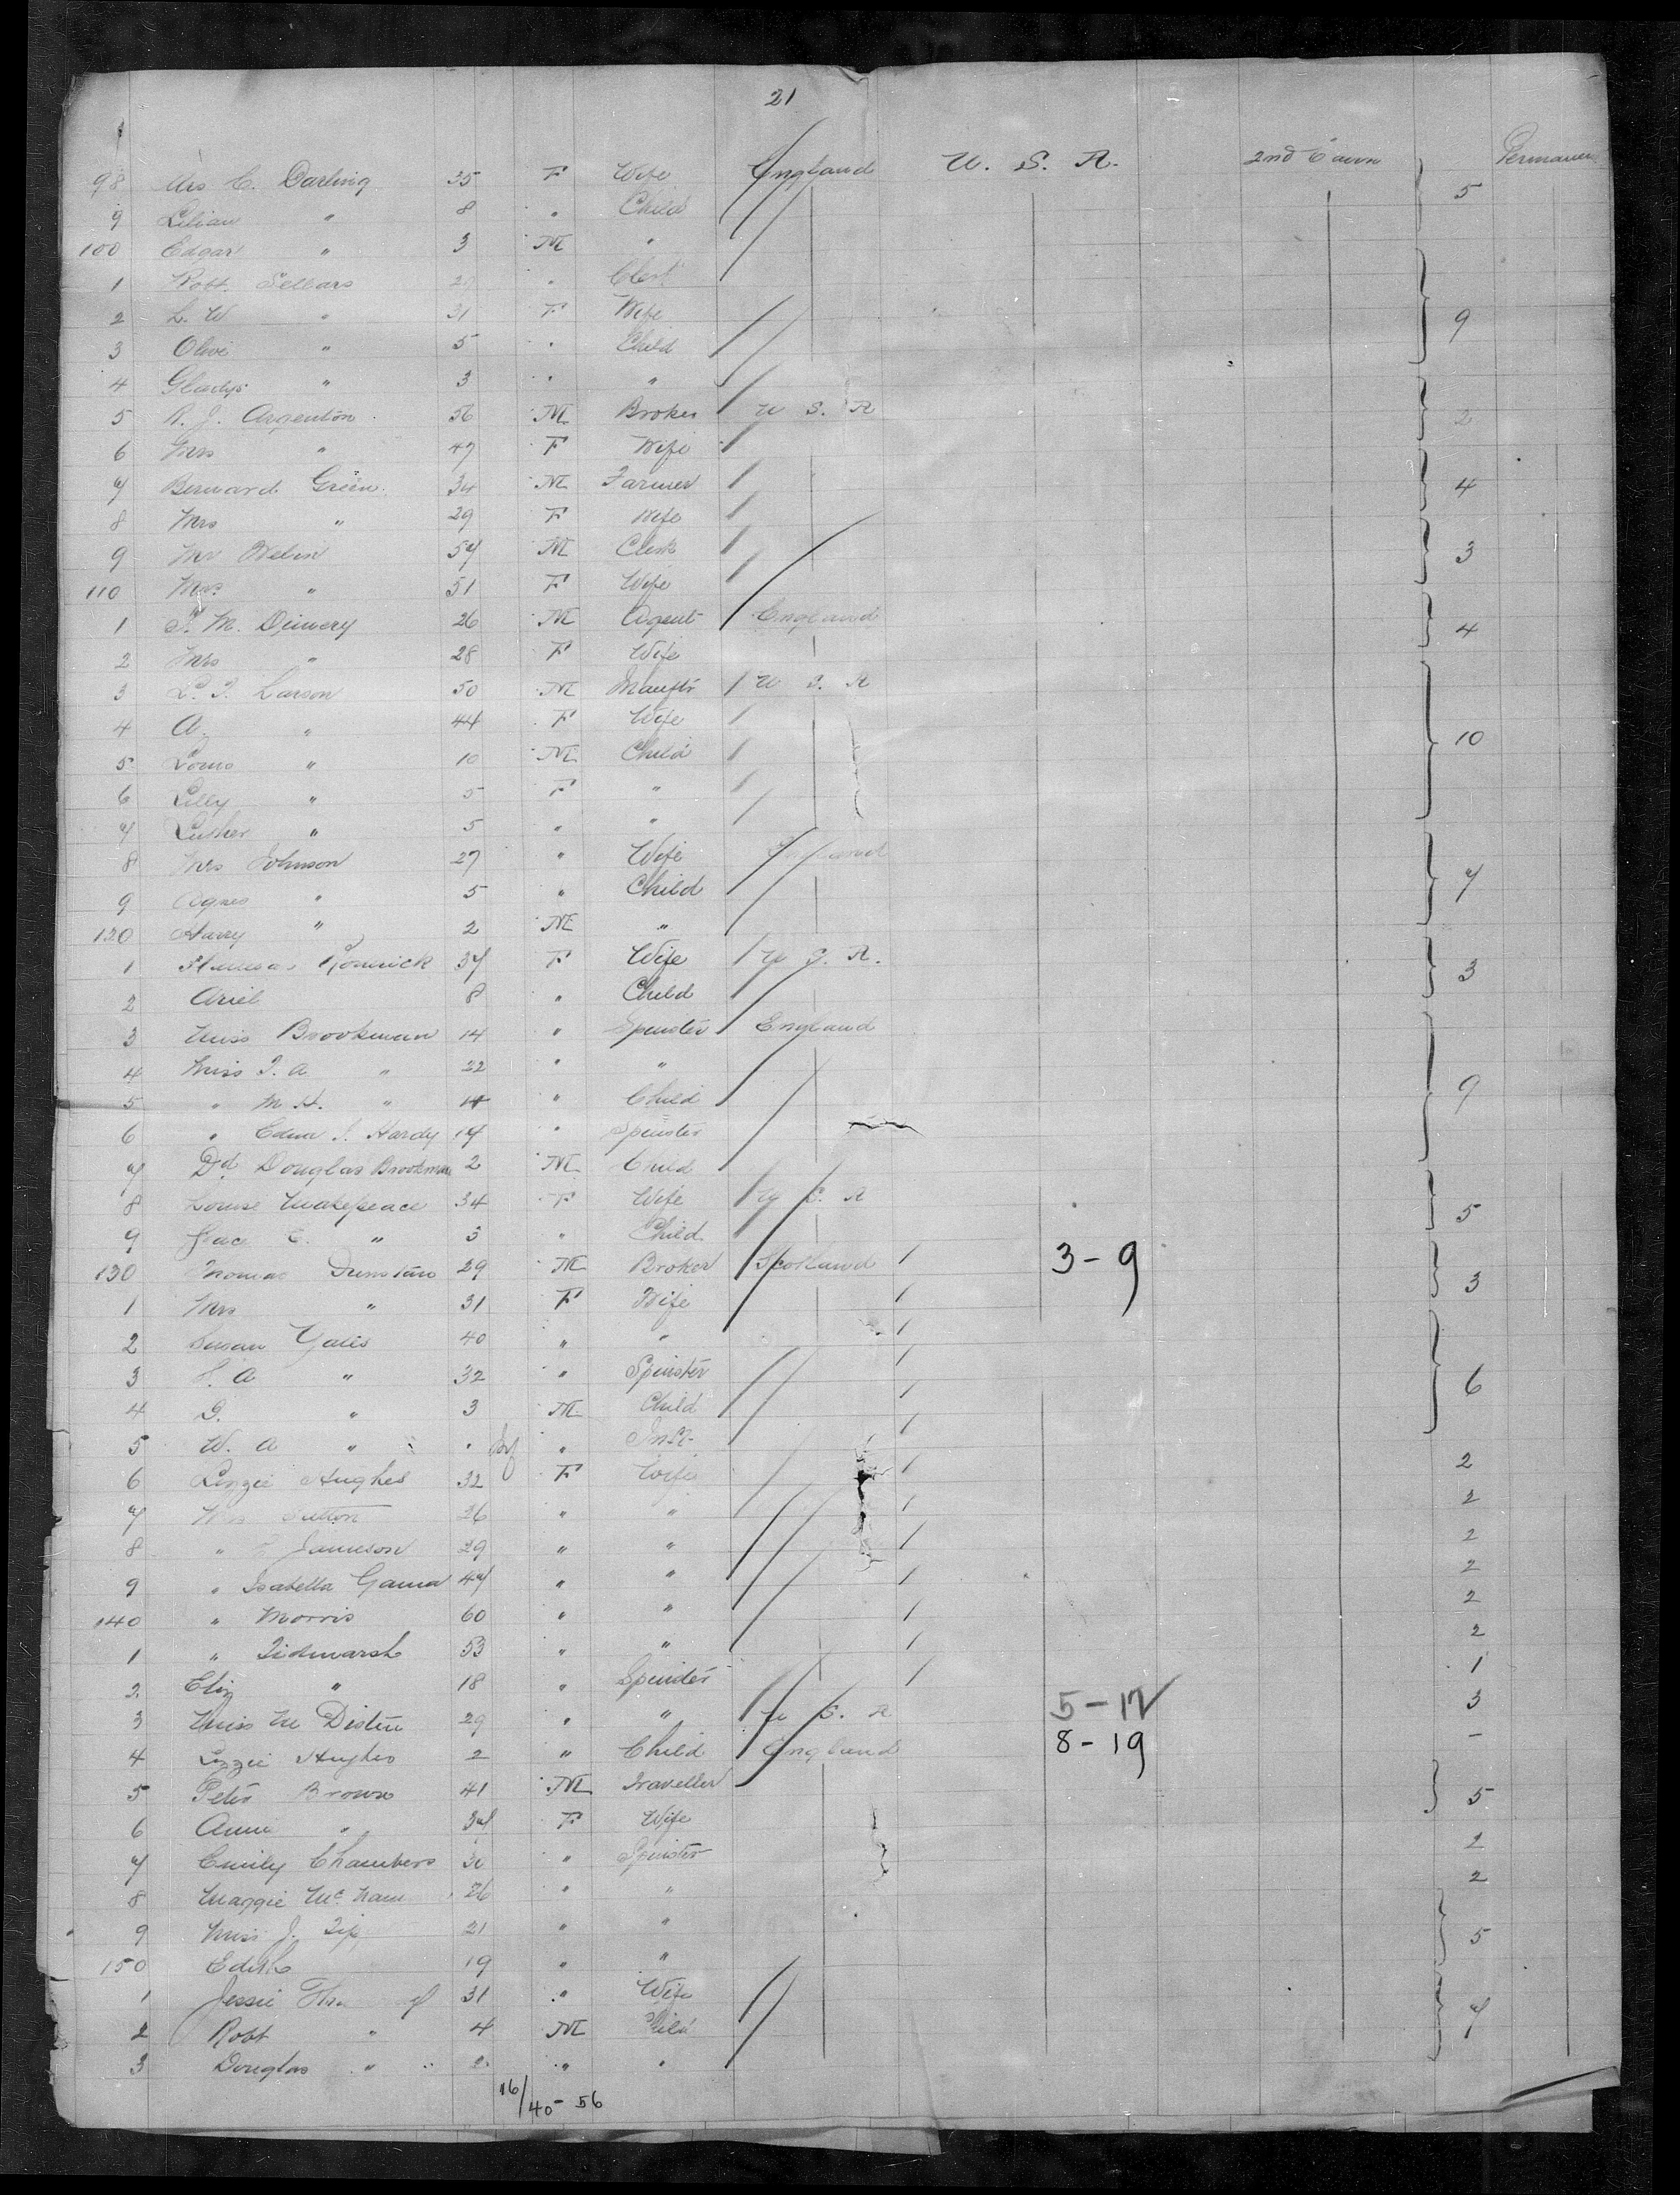 21
98 Mrs C. Darling 35 F Wife England U. S. A. 2nd Cabin Permanen 5
9 Lilian " 8 " Child
100 Edgar " 3 M "
1 Robt. Sellars 29 " Clerk
2 L. W " 31 F Wife 9
3 Olive " 5 " Child
4 Gladys " 3 " "
5 R. J. Argenton 56 M Broker U S. A 2
6 Mrs " 47 F Wife
7 Bernard Green 34 M Farmer 4
8 Mrs " 29 F Wife
9 Mr 57 M Clerk 3
110 Mrs " 51 F Wife
1 M. 26 M Agent England 4
2 Mrs " 28 F Wife
3 Larson 50 M Manftr U S. A
4 A. " 44 F Wife 10
5 Louis " 10 M Child
6 Lilly " 5 F "
7 Luther " 5 " "
8 Mrs Johnson 27 " Wife England
9 Agnes " 5 " Child 7
120 Harry " 2 M "
1 37 F Wife U S. A. 3
2 Ariel 8 " Child
3 Miss Brookman 14 " Spinster England
4 Miss " 22 " " 9
5 " M. H. " 14 " Child
6 " Hardy 17 " Spinster
7 Douglas Brookman 2 M Child
8 Louise Makepeace 34 F Wife U S. A 5
9 E. " 3 " Child
130 Thomas Dunstan 29 M Broker Scotland 1 3-9 3
1 Mrs " 31 F Wife 1
2 Susan Yates 40 " " 1
3 A " 32 " Spinster 1 6
4 G. " 3 M Child 1
5 W. A " " Inft. 1
6 Lizzie Hughes 32 F Wife 1 2
7 Mrs Sutton 26 " " 1 2
8 " Jameson 29 " " 1 2
9 " Isabella 47 " " 1 2
140 " Morris 60 " " 1 2
1 " Tidmarsh 53 " " 1 2
2 Eliz " 18 " Spinster 1 1
3 Miss M 29 " " U S. A 5-12 3
4 Lizzie Hughes 2 " Child England 8-19 -
5 Peter Brown 41 M Traveller 5
6 Annie " 37 F Wife
7 Emily Chambers 30 " Spinster 2
8 Maggie 26 " " 2
9 Miss J. 21 " " 5
150 Edith 19 " "
1 Jessie 31 " Wife
2 Robt " 4 M Child 7
3 Douglas " 2 " "
16/40-56